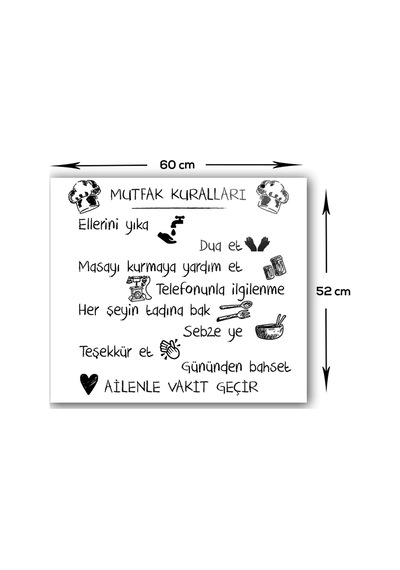 60 cm
MUTFAK KURALLARI
Ellerini yıka
Dua et
Masayı kurmaya yardım et
Telefonunla ilgilenme
Her şeyin tadına bak
52 cm
Sebze ye
Teşekkür et
Gününden bahset
AİLENLE VAKİT GEÇİR